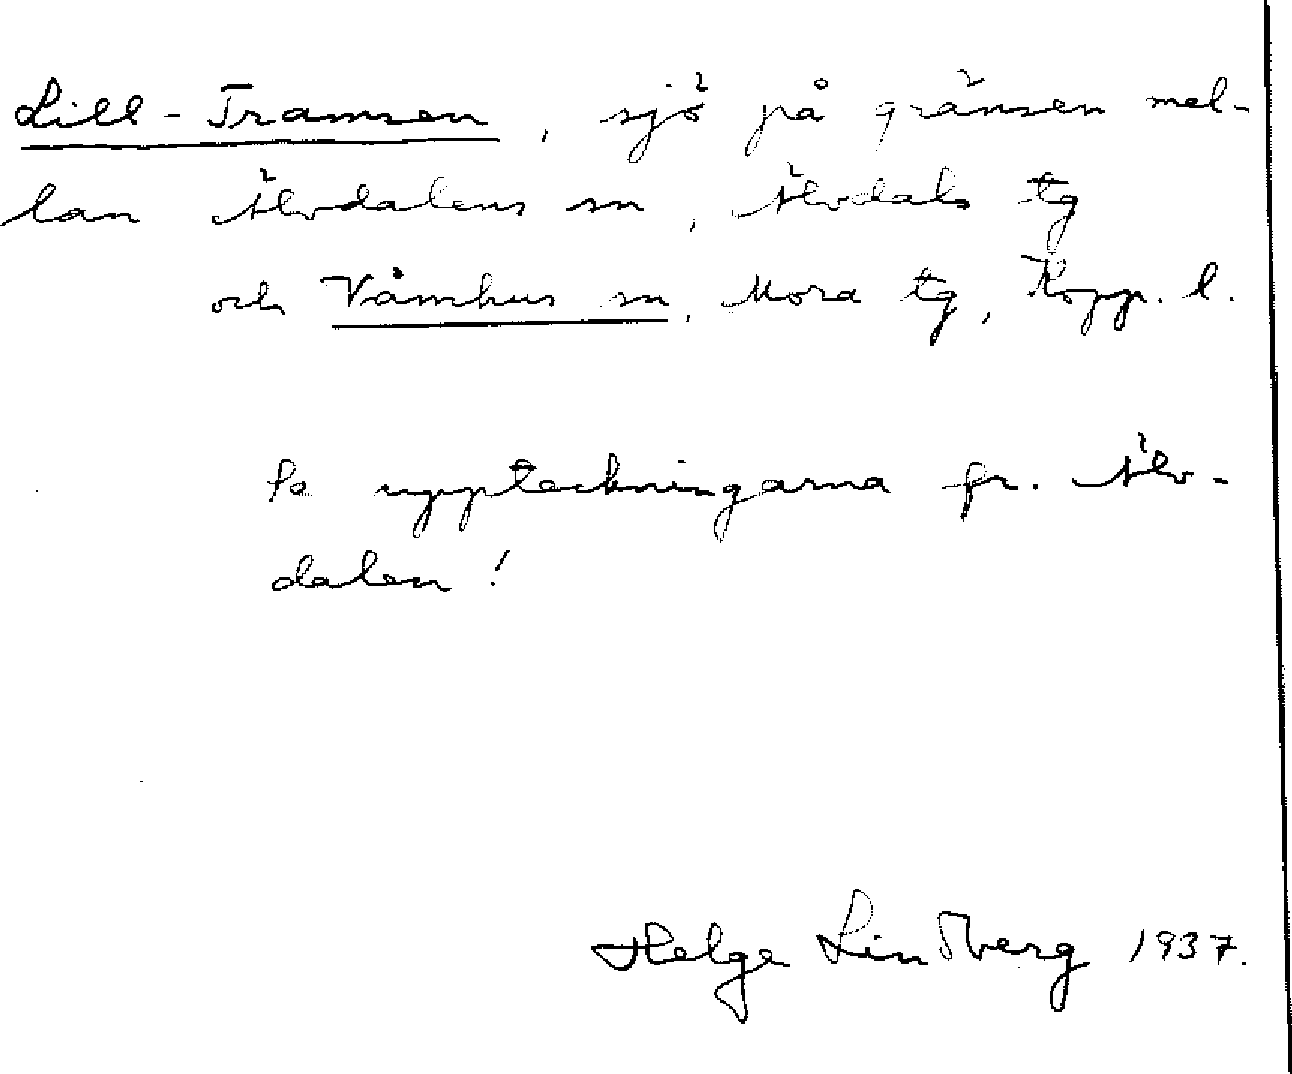 Lill-Tramsen, sjö på gränsen mel-
lan Älvdalens sn, Älvdals tg
och Våmhus sn, Mora tg, Kopp. l.
Se uppteckningarna fr. Älv-
dalen!
Helge Lindberg 1937.